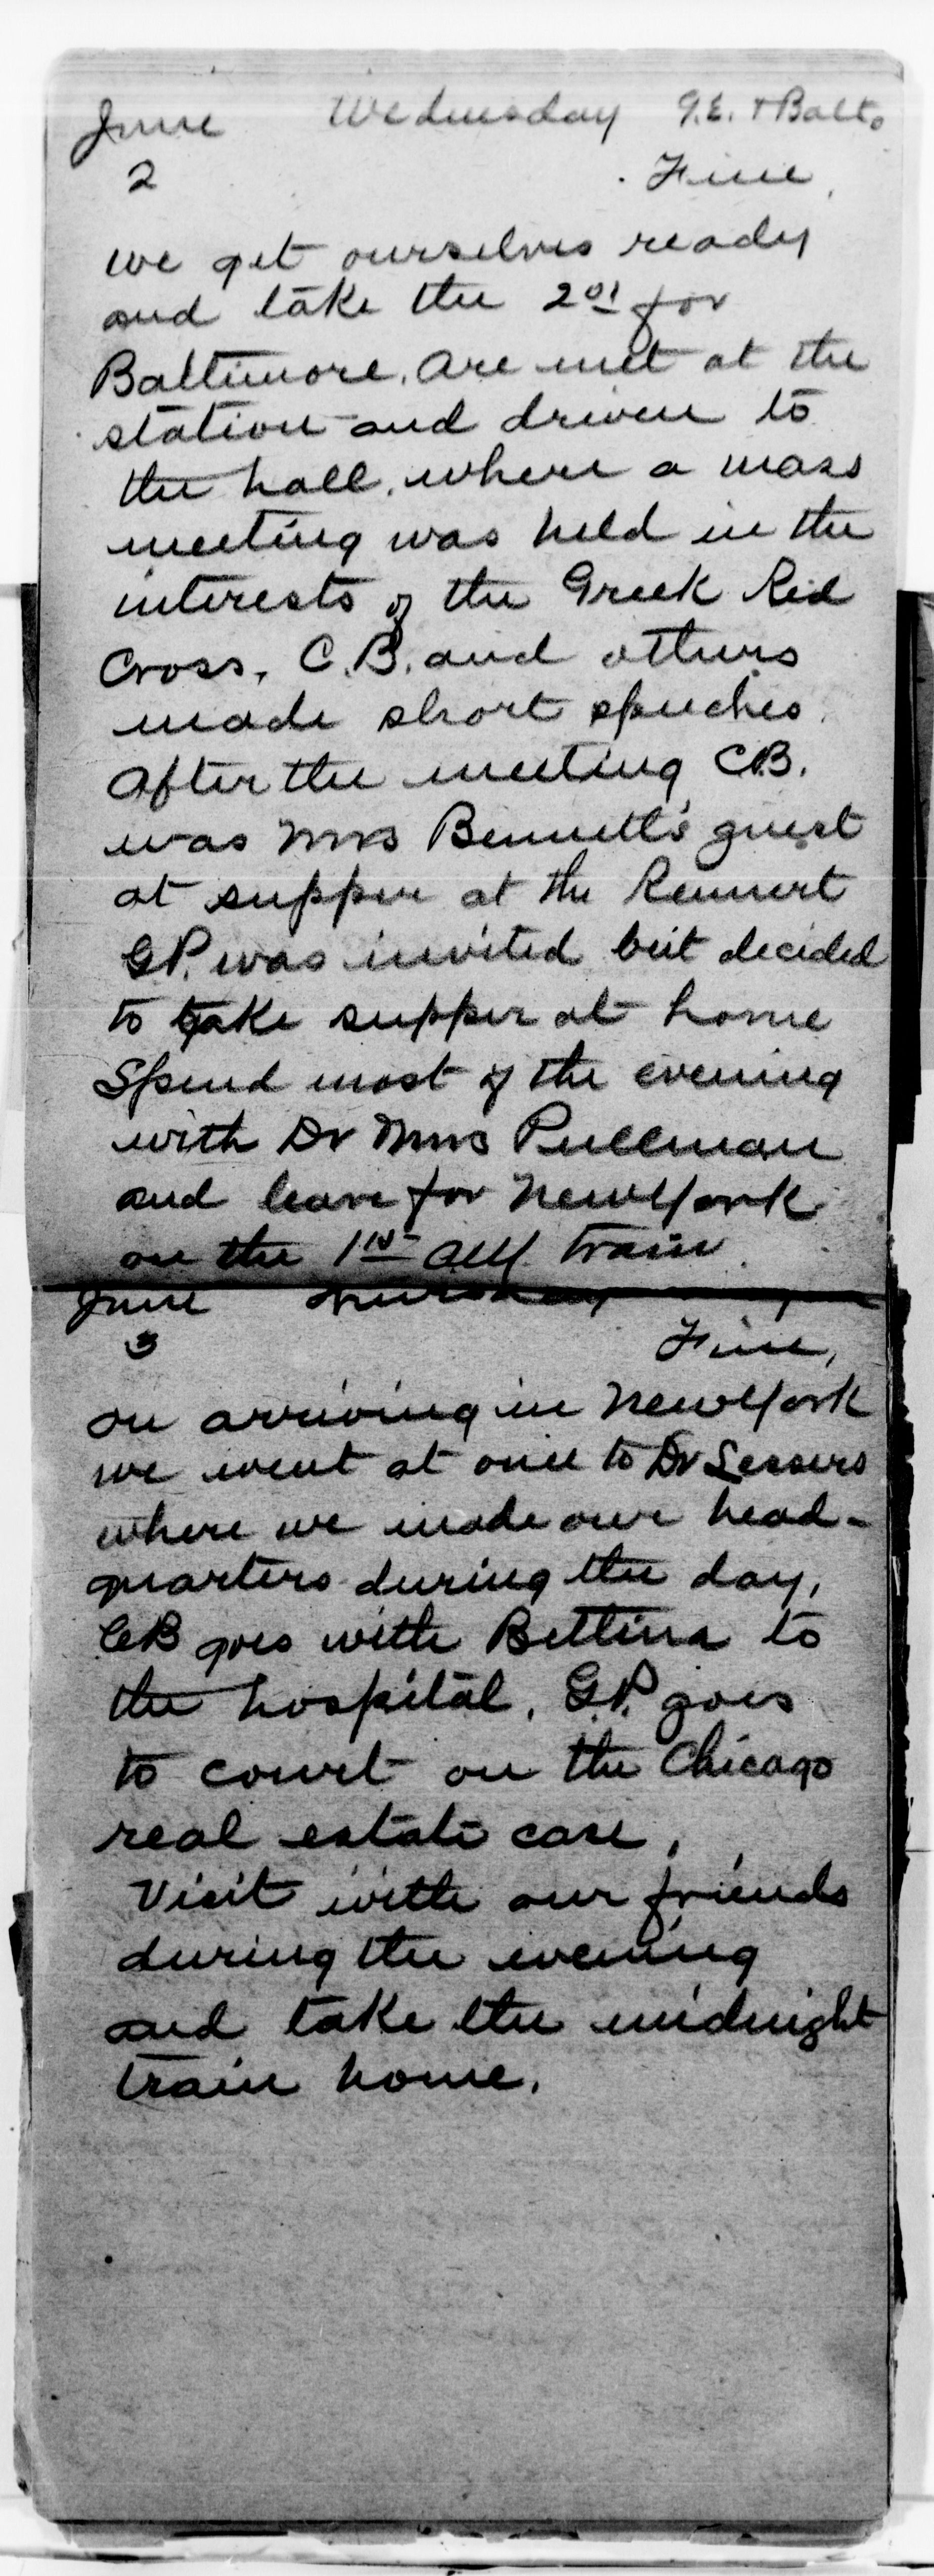 June Wednesday G.E. & Balto.
2 Fine,
we get ourselves ready
and take the 2 01 for
Baltimore. are met at the
station and driven to
the hall, where a mass
meeting was held in the
interests of the Greek Red
Cross, C.B. and others
made short speeches.
After the meeting C.B.
was Mrs Bennett's guest
at supper at the Rennert
G.P. was invited but decided
to take supper at home
Spend most of the evening
with Dr Mrs Pullman
and leave for New York
on the train.
June Thursday
3 Fine,
on arriving in New York
we went at once to Dr Lessers
where we made our head-
quarters during the day,
CB goes with Bettina to
the hospital, G.P. goes
to court on the Chicago
real estate case,
Visit with our friends
during the evening
and take the midnight
train home.